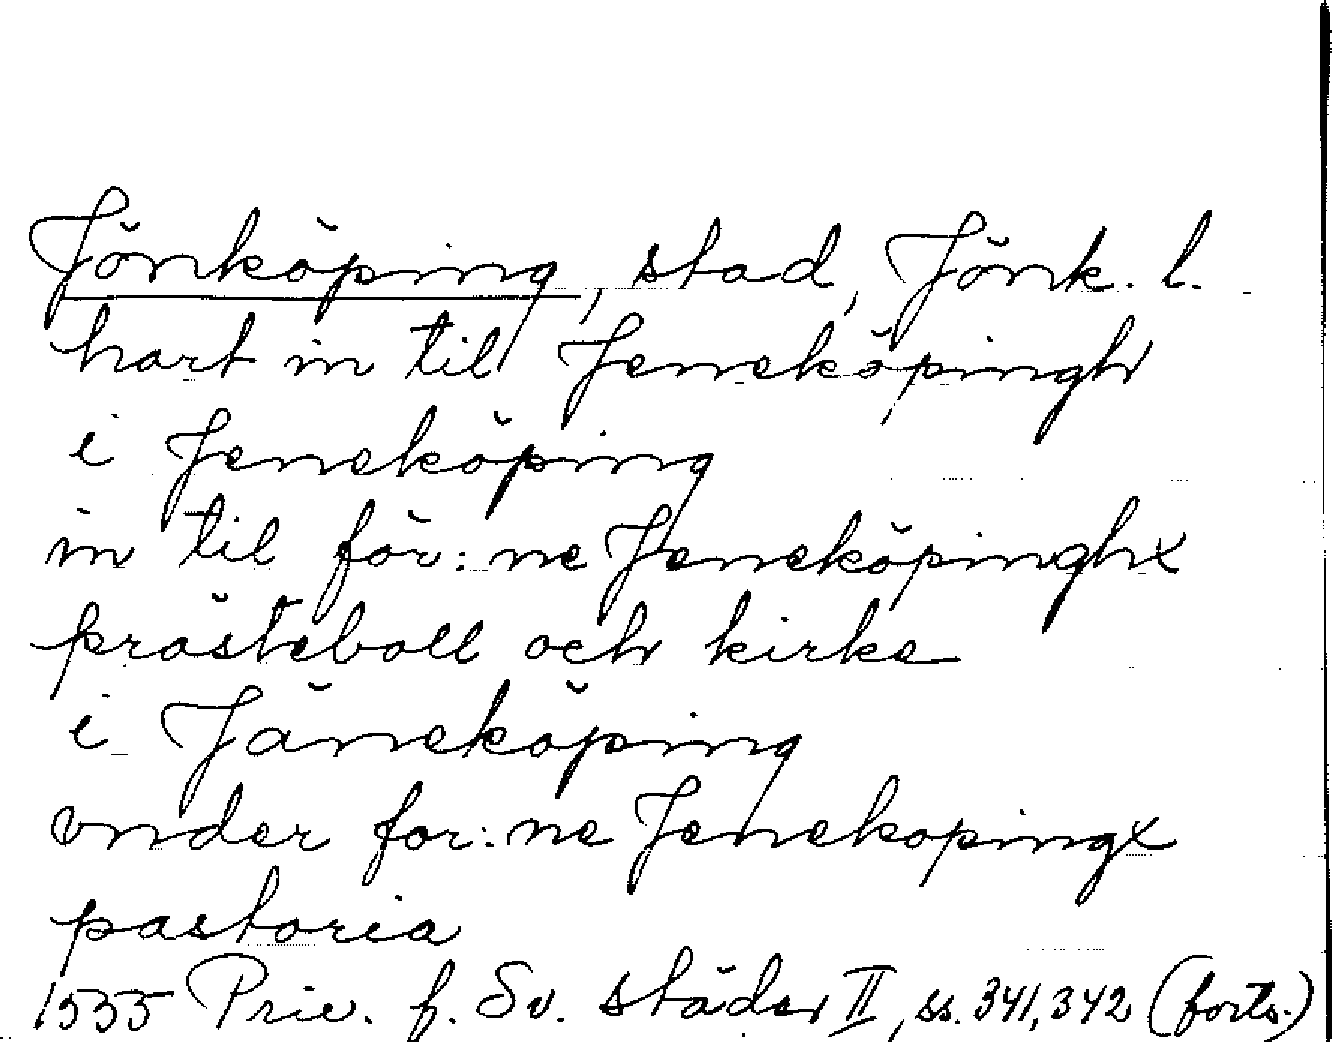 Jönköping, stad, Jönk. l.
hart in til Jeneköpingh
i Jeneköping
in til för:ne Jeneköpinghx
prästeboll och kirke
i Jäneköping
vnder for:ne Jenekopingx
pastoria
1535 Priv. f. Sv. städer II, ss. 341, 342 (forts.)